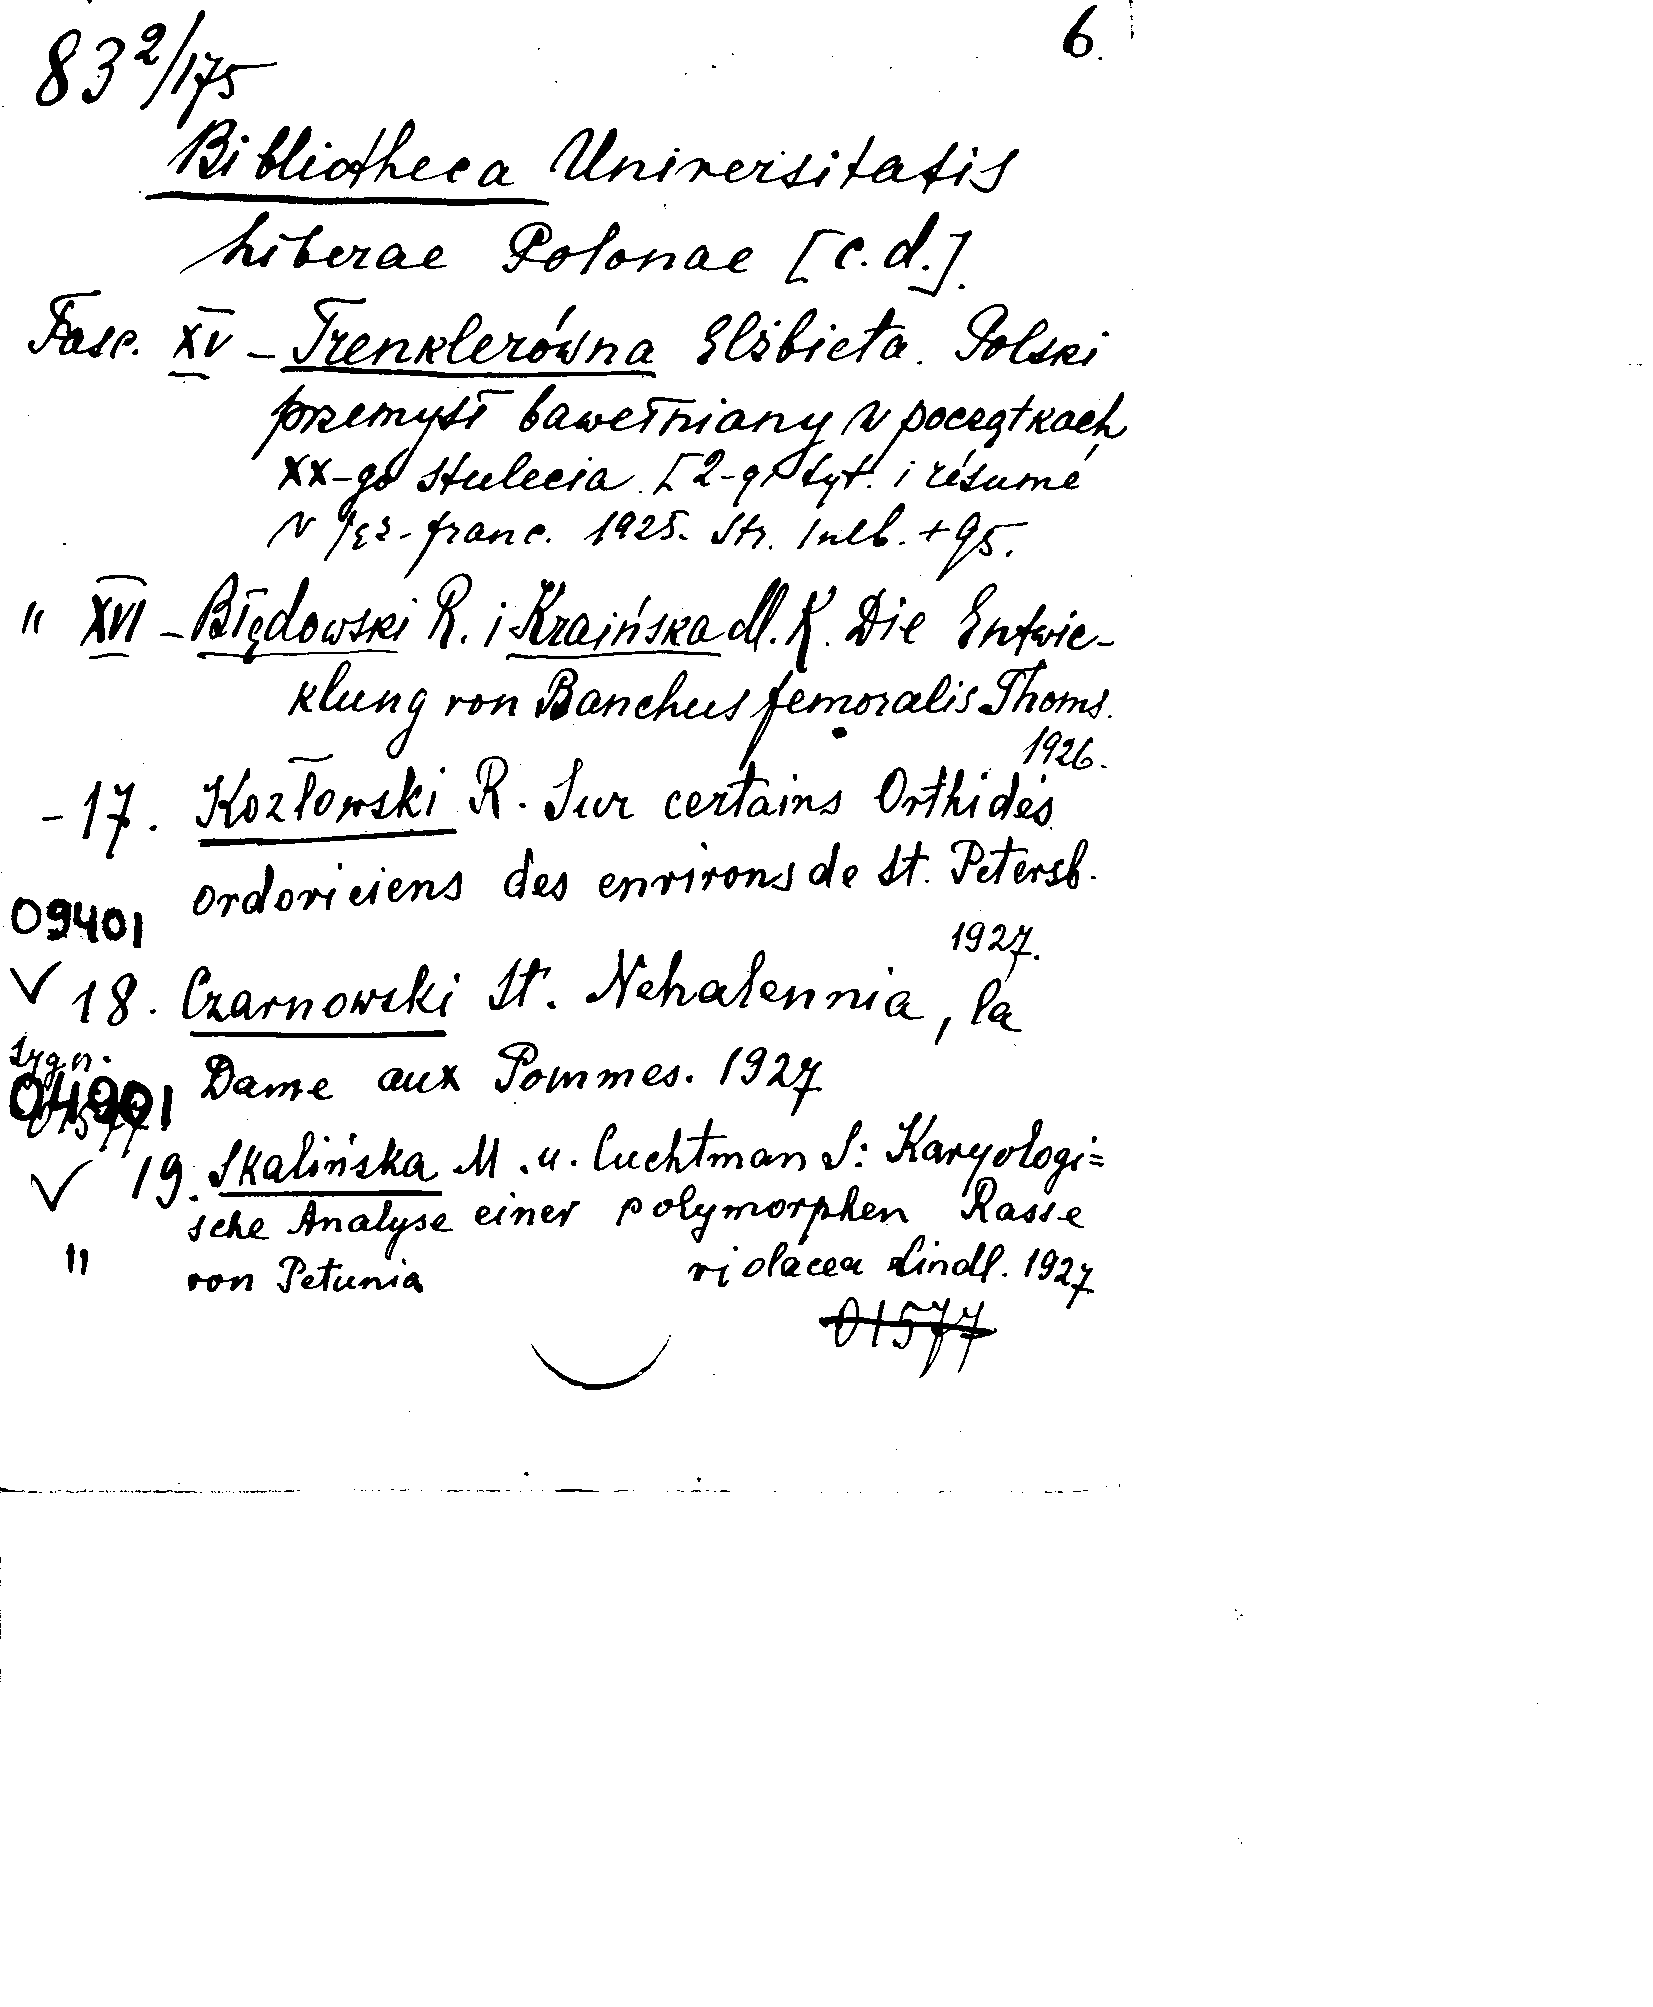 83²/175
6.
Bibliotheca Universitatis
Liberae Polonae [c.d.].
Fasc. XV – Trenklerówna Elżbieta. Polski
przemysł bawełniany w początkach
XX-go stulecia. [2-gi tyt. i résumé
w jęz. franc. 1925. Str. 1 nlb. + 95.
" XVI – Błędowski R. i Kraińska M. K. Die Entwic-
klung von Banchus femoralis Thoms.
1926.
- 17. Kozłowski R. Sur certains Orthidés
ordoviciens des environs de St. Petersb.
09401
1927.
✓ 18. Czarnowski St. Nehalennia, la
Sygn.
Dame aux Pommes. 1927
04901
✓ 19. Skalińska M. u. Cuchtman S: Karyologi=
sche Analyse einer polymorphen Rasse
" von Petunia violacea Lindl. 1927
01577